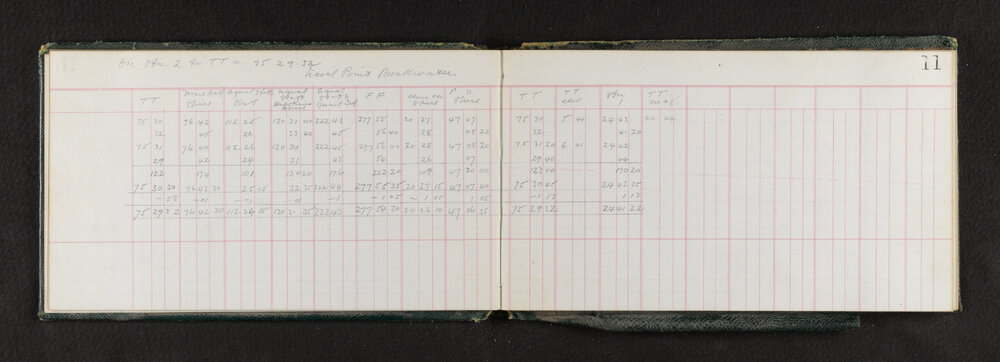 11
on Stn 2 to TT = 75 29.32
Naval Point Breakwater
TT Signal Staff Signal Staff Signal Staff FF Spire P.O Spire TT TT Stn 1 TT
75 30 76 43 112 25 130 31 40 222 43 277 55 20 27 47 07 75 30 5 41 24 42
32 45 26 33 40 45 56 40 28 08 20 32 41 20
75 31 76 44 112 26 130 34 222 45 277 56 40 20 28 47 08 20 75 31 20 6 01 24 42
29 42 24 31 43 54 26 07 29 40 44
122 174 101 130 20 176 222 20 109 47 30 40 123 00 170 20
75 30 30 76 43 30 25 15 32 35 222 44 277 55 35 20 27 15 47 07 40 75 30 45 24 42 35
- 58 - 01 - 01 - 01 - 1 - 1 05 - 1 05 1 05 - 1 13 1 13
75 29 32 76 42 30 112 24 15 130 31 35 222 43 277 54 30 20 26 10 47 06 35 75 29 32 24 41 22